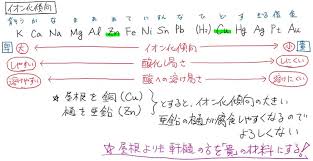 イオン化傾向
K Ca Na Mg Al Zn Fe Ni Sn Pb (H₂) Cu Hg Ag Pt Au
大 イオン化傾向 小
しやすい 酸化し易さ しにくい
溶けやすい 酸への溶け易さ 溶けにくい
☆屋根を銅(Cu)
樋を亜鉛(Zn)
とすると、イオン化傾向の大きい
亜鉛の樋が腐食しやすくなるので
よろしくない
☆屋根よりも軒樋の方を貴の材料にする!